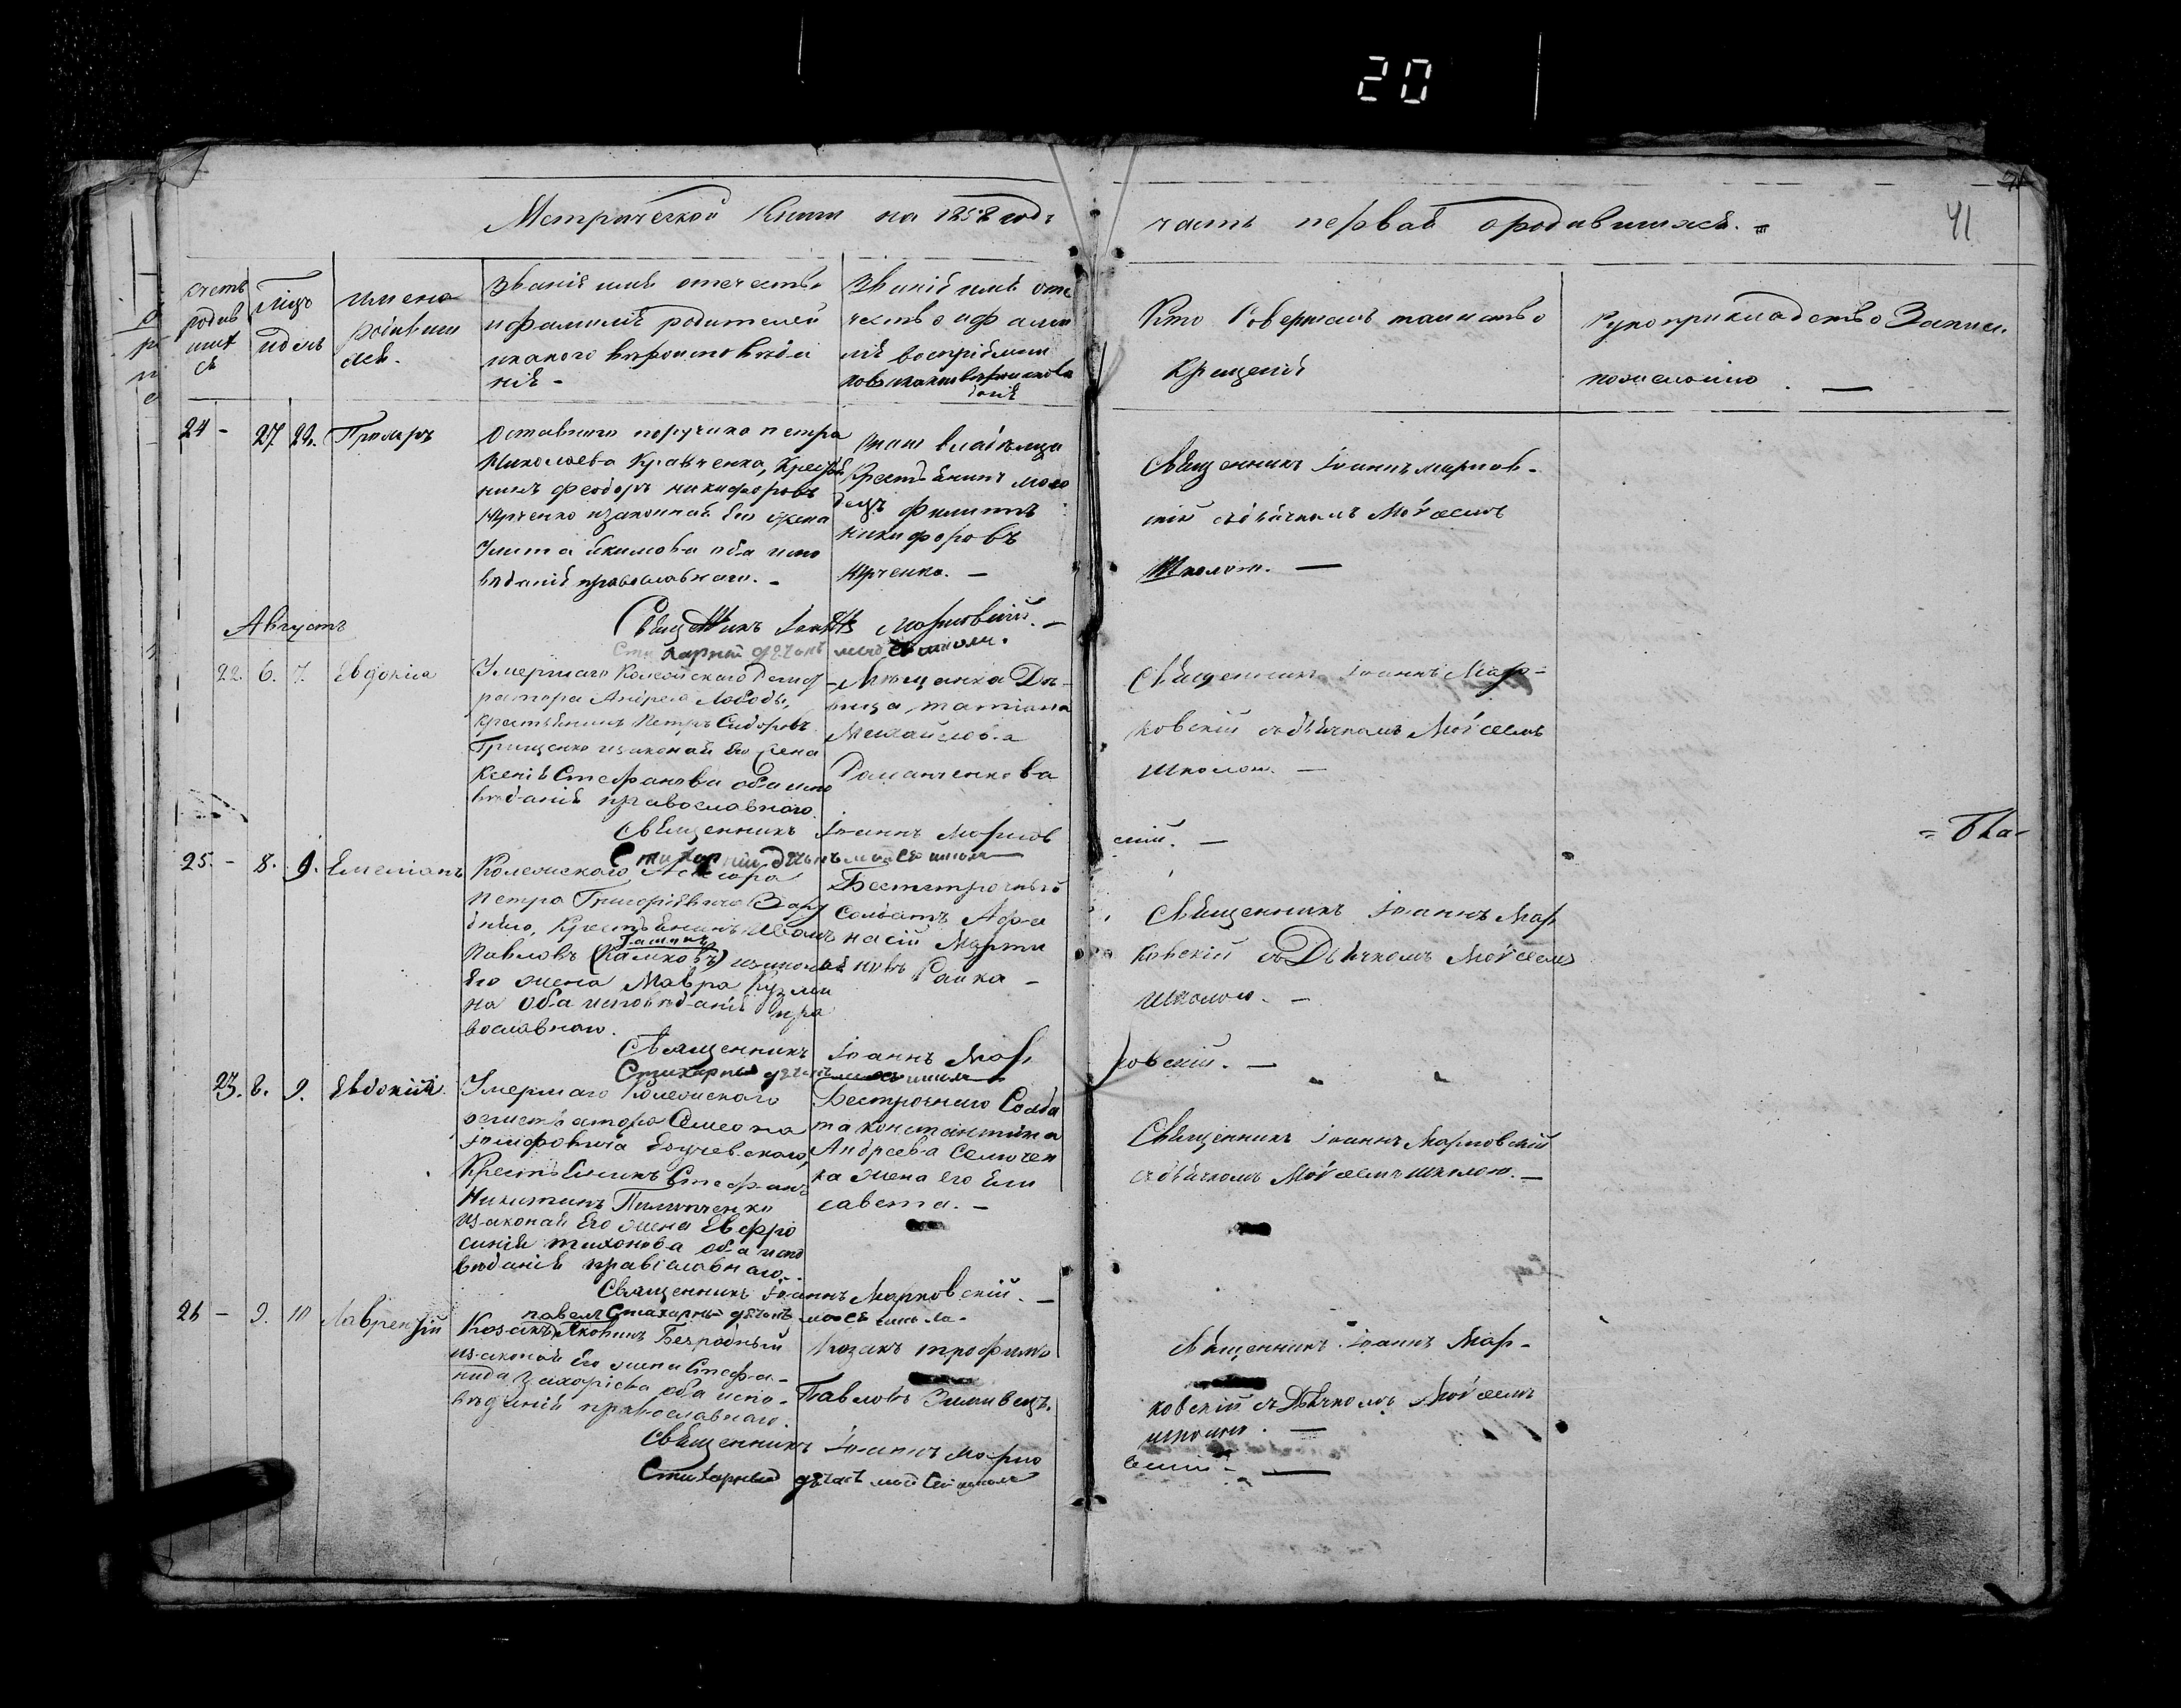 20
41
Метрической Книги на 1858 годъ
часть первая о родившихся. =
счетъ
родив
ших
ся
Мцъ
и день
имена
родивши
хся.
Званіе имя отечество
и фамилія родителей
и какого вероисповѣда
нія -
Званіе имя оте
чество и фами
лія воспріемни
ковъ и какого вероисповѣ
данія
Кто совершалъ таинство
Крещенія
Рукоприкладство Записи
по желанію . —
24 - 27 28. Прокиръ
Оставного поручика петра
Николаева Кравченка, Крестья
нинъ феодоръ никифоровъ
Юрченко изаконная Его жена
Улита Якимова оба испо
веданія православнаго. -
Крестьянинъ моло
децъ филиппъ
никифоровъ
Юрченко. —
Священникъ Іоаннъ марков-
скій съ дьячкомъ Моѵсеемъ
Школою. —
Священникъ Іоаннъ Марковскій. -
Августъ
22. 6. 7. Евдокія
Умершаго Колежскаго Регист
ратора Андрея Лободы,
Крестьянинъ Петръ Сидоровъ
Грищенко изаконая Его Жена
Ксенія Стефанова оба испо
веданія православнаго.
Мещанка Дѣ-
вица, татіана
Михайлова
Романченкова
Священникъ Іоаннъ Мар-
ковскій съ дьячкомъ Моѵсеемъ
Школою. —
Священникъ Іоаннъ Марков
скій. —
Стихарный дьячекъ Моѵсей Школа
25. - 8. 9. Емеліанъ
Колежскаго
Петра Григоріевича
Крестьянинъ Иванъ
Павловъ изаконая
Его жена Мавра Кузми
на оба исповѣданія пра
вославнаго.
Безсрочный
Солдатъ Афа
насій Марти
новъ Гайка -
Священникъ Іоаннъ Мар
ковскій съ Дьячкомъ Моѵсеемъ
Школою. —
Священникъ Іоаннъ Мар
ковскій. —
Стихарный дьячекъ Моѵсей Школа
23. 8. 9. Евдокія
Умершаго Колежскаго
регистратора Семеона
Іосифовича
Крестьянинъ Стефанъ
Никитинъ Пилипченко
изаконая Его жена Евфро
синія тихонова оба испо
веданія православнаго.
Безсрочнаго Солда
та константина
Андреева Семичен
ка жена его Ели
савета. —
Священникъ Іоаннъ Марковскій
съ дьячкомъ Моѵсеемъ Школою. —
Священникъ Іоаннъ Марковскій. —
Стихарный дьячекъ Моѵсей Школа.
26 - 9. 10 Лаврентій
павелъ
Козакъ Яковинъ Безродный
изаконая Его жена Стефа-
нида Захаріева оба испо-
веданія православнаго.
Козакъ трофимъ
Павловъ Зимивецъ.
Священникъ Іоаннъ Мар-
ковскій съ Дьячкомъ Моѵсеемъ
школою. —
Священникъ Іоаннъ Марко
вскій - —
Стихарный дьячекъ Моѵсей Школа